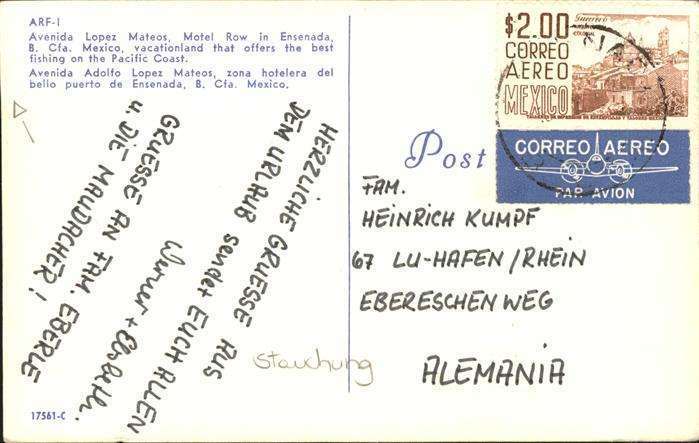 ARF-1
Avenida Lopez Mateos, Motel Row in Ensenada,
B. Cfa. Mexico, vacationland that offers the best
fishing on the Pacific Coast.
Avenida Adolfo Lopez Mateos, zona hotelera del
bello puerto de Ensenada, B. Cfa. Mexico.
HERZLICHE GRUESSE AUS
DEM URLAUB sendet EUCH ALLEN
Werner + Elsbeth.
GRUESSE AN FAM. EBERLE
u. DIE MAUDACHER!
17561-C
Post
$2.00
Guerrero
COLONIAL
CORREO
AEREO
MEXICO
CORREO AEREO
PAR AVION
FAM.
HEINRICH KUMPF
67 LU-HAFEN/RHEIN
EBERESCHENWEG
ALEMANIA
Stauchung